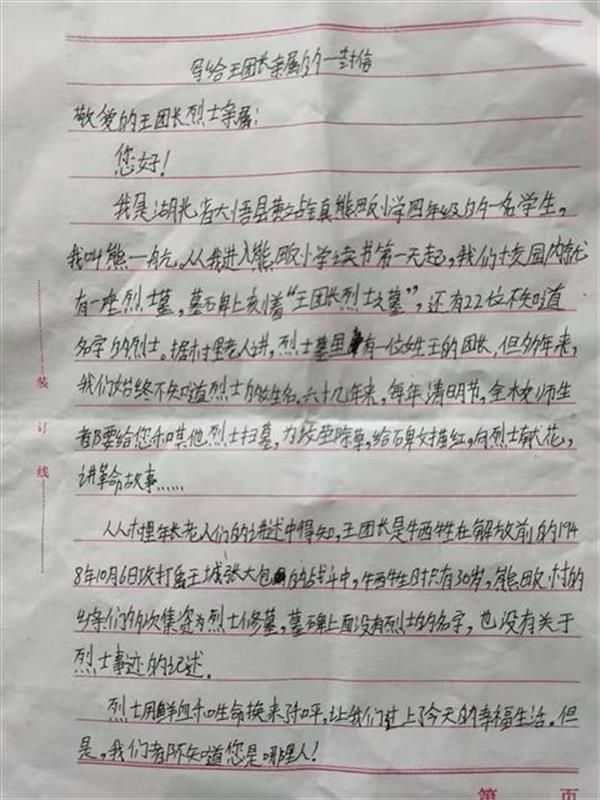 写给王团长亲属的一封信
敬爱的王团长烈士亲属:
您好!
我是湖北省大悟县黄站镇熊畈小学四年级的一名学生,
我叫熊一航。从我进入熊畈小学读书第一天起,我们校园内就
有一座烈士墓,墓石碑上刻着“王团长烈士之墓”,还有22位不知道
名字的烈士。据村里老人讲,烈士墓里有一位姓王的团长,但多年来,
我们始终不知道烈士的姓名。六十几年来,每年清明节,全校师生
都要给您和其他烈士扫墓,为坟茔除草,给碑文描红,向烈士献花,
讲革命故事……
从村里年长老人们的讲述中得知,王团长是牺牲在解放前的194
8年10月6日攻打宣王城张大包的战斗中,牺牲时只有30岁,熊畈村的
乡亲们多次集资为烈士修墓,墓碑上面没有烈士的名字,也没有关于
烈士事迹的记述。
烈士用鲜血和生命换来了和平,让我们过上了今天的幸福生活。但
是,我们都不知道您是哪里人!
装
订
线
第 页